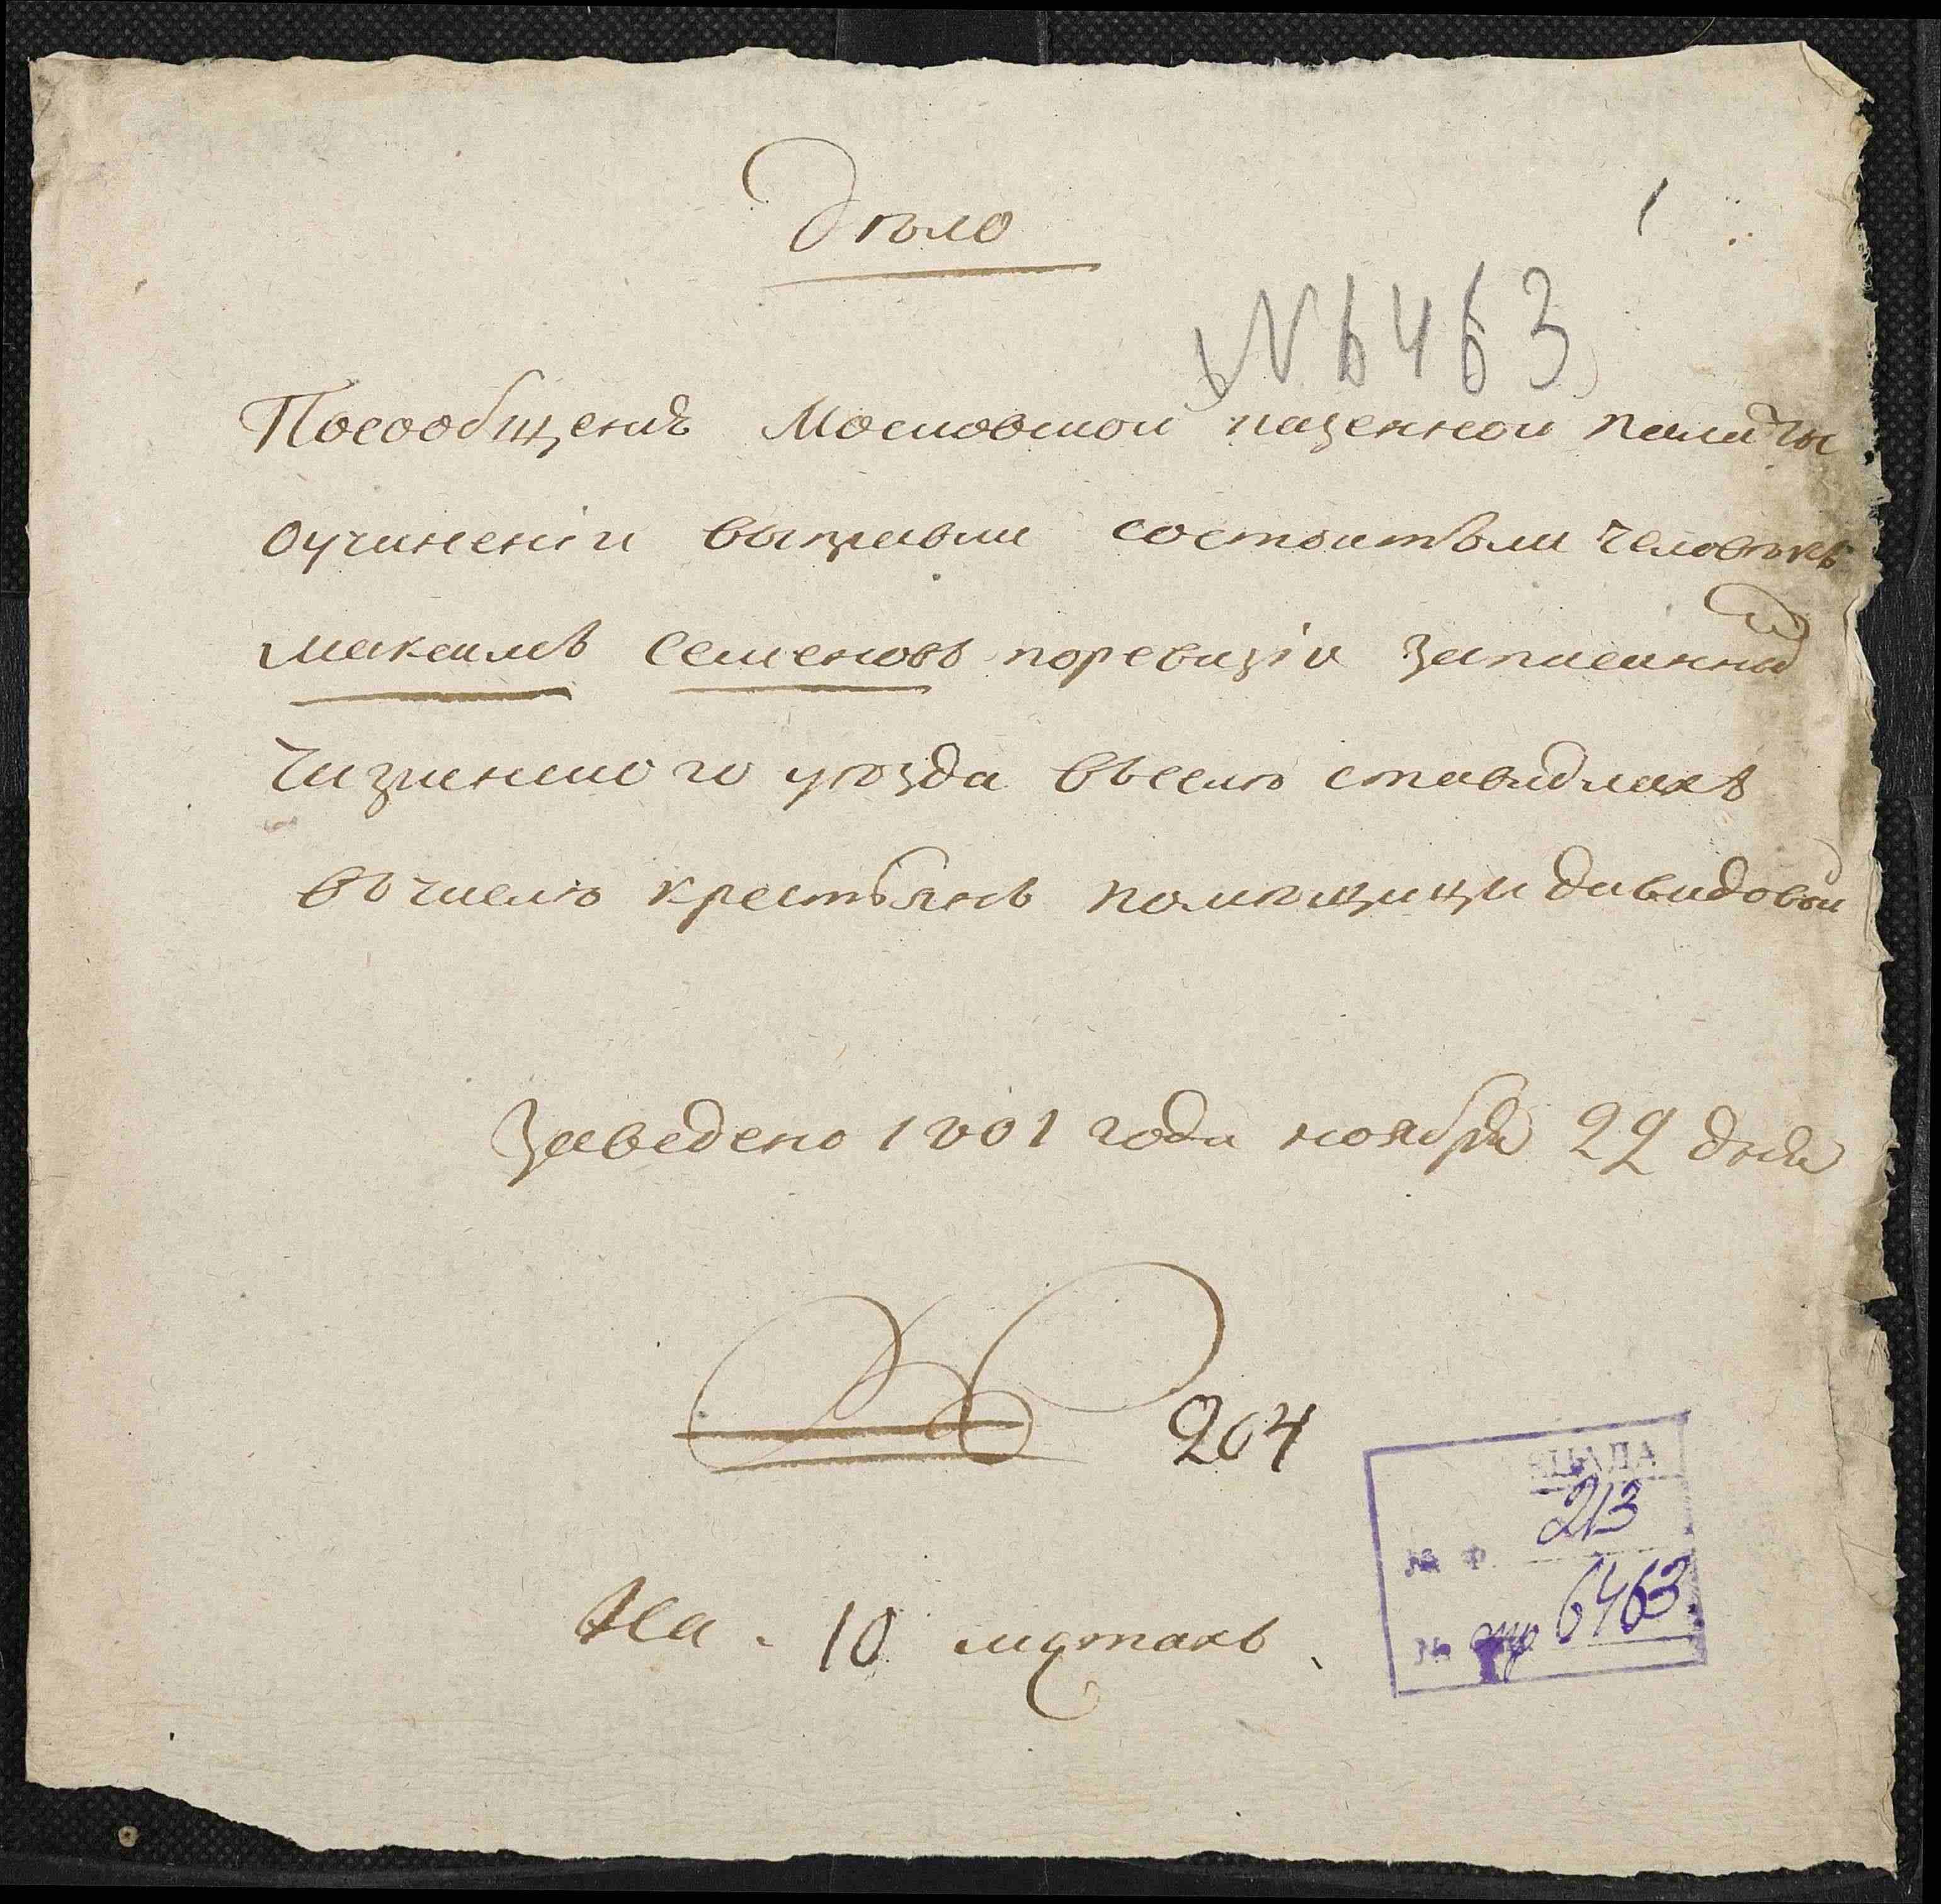 1
Дѣло
№ 6463
Посообщенію Московской казенной палаты
Оучиненіи выправки состоитъли человѣкъ
максимъ Семеновъ поревизіи записанной
Чигринского уѣзда въселѣ ставидлахъ
въчислѣ крестьянъ помѣщицы давидовой
Заведено 1801 года ноября 22 дня
204
На 10 листахъ
ЦГАДА
№ Ф. 213
№ 6463